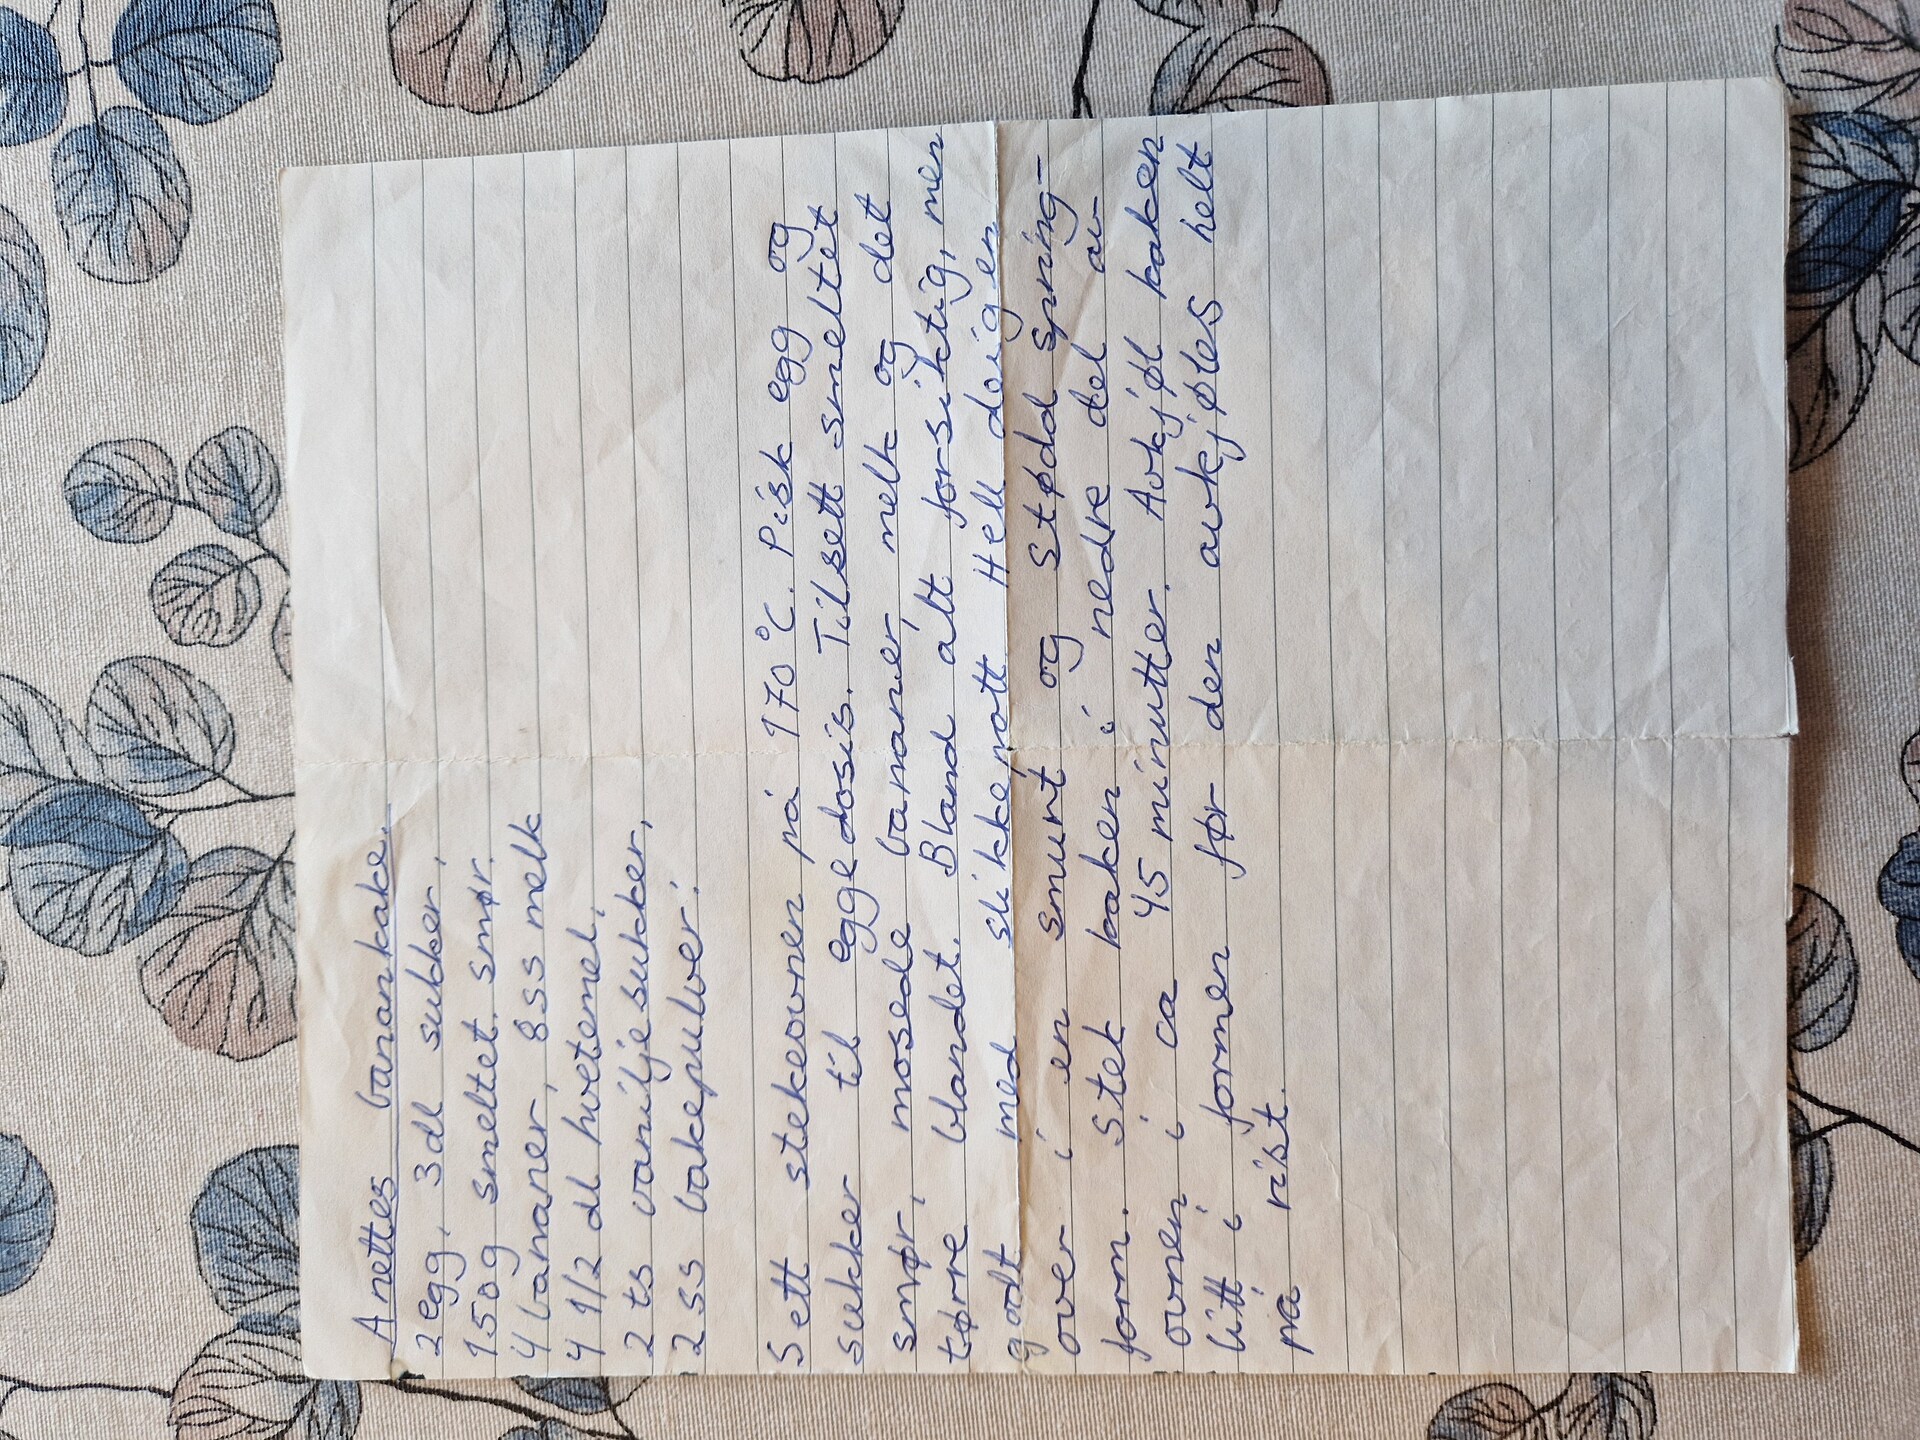 Anettes banankake.
2 egg, 3 dl sukker,
150g smeltet. smør.
4 bananer, 8 ss melk
4 1/2 dl hvetemel,
2 ts vaniljesukker,
2 ss bakepulver:
Sett stekeovnen på 170 °C. Pisk egg og
sukker til eggedosis. Tilsett smeltet
smør, mosede bananer, melk og det
tørre blandet. Bland alt forsiktig, men
godt med slikkepott Hell deigen
over i en smurt og stødd spring-
form. Stek kaken i nedre del av
ovnen i ca 45 minutter. Avkjøl kaken
litt i formen før den avkjøles helt
på rist.